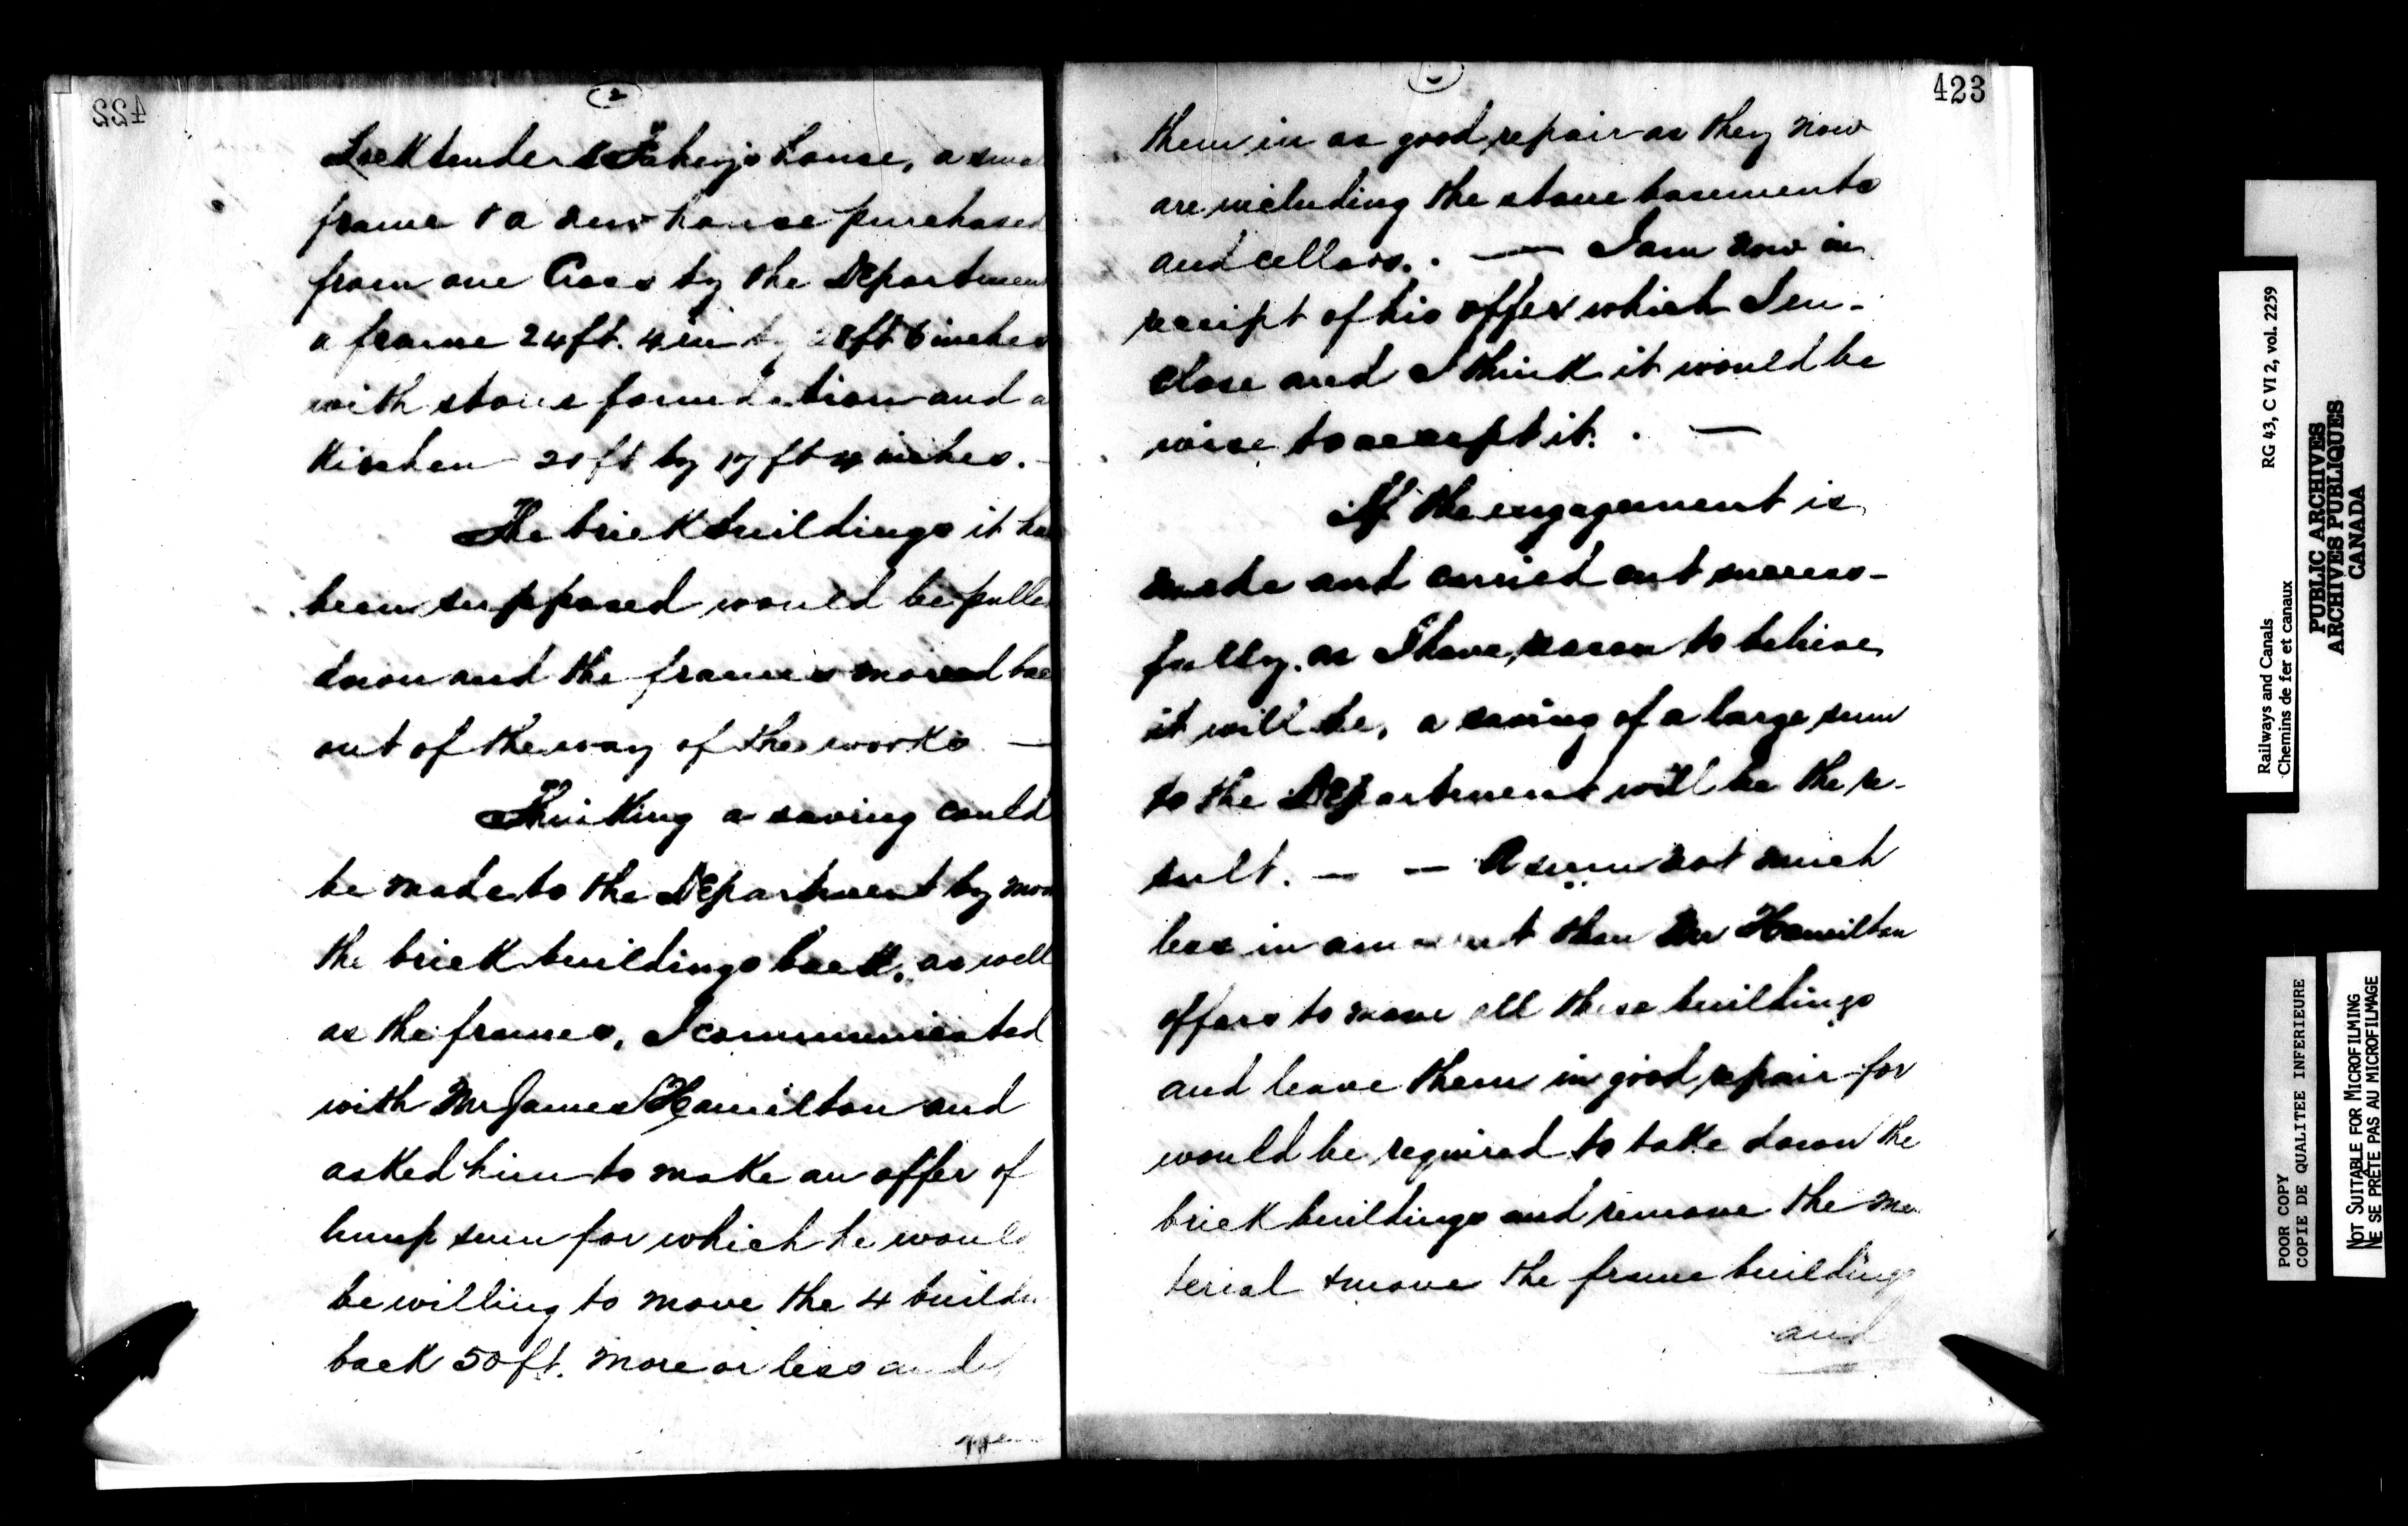 422
2
Locktender Fahey's house, a smal
frame & a new house purchased
from one Cross by the Department
a frame 24ft. 4in by 28ft 6 inches
with stone foundation and a
Kitchen 20 ft by 17 ft 4 inches. -
The brick buildings it has
been supposed would be pulle
down and the frames moved bac
out of the way of the works —
Thinking a saving could
be made to the Department by mov
the brick buildings back, as well
as the frames, I communicated
with Mr James Hamilton and
asked him to make an offer of
lump sum for which he would
be willing to move the 4 buildin
back 50 ft. more or less and
423
them in as good repair as they now
are including the stone basements
and cellars. . — I am now in
receipt of his offer which I en-
close and I think it would be
wise to accept it. . —
If the engagement is
made and carried out success-
fully, as I have reason to believe
it will be, a saving of a large sum
to the Department will be the re-
sult. — — A sum not much
less in amount than Mr Hamilton
offers to move all these buildings
and leave them in good repair for
would be required to take down the
brick buildings and remove the ma
terial & move the frame buildings
and
Railways and Canals RG 43, C VI 2, vol. 2259
Chemins de fer et canaux
PUBLIC ARCHIVES
ARCHIVES PUBLIQUES
CANADA
POOR COPY
COPIE DE QUALITEE INFERIEURE
NOT SUITABLE FOR MICROFILMING
NE SE PRÊTE PAS AU MICROFILMAGE